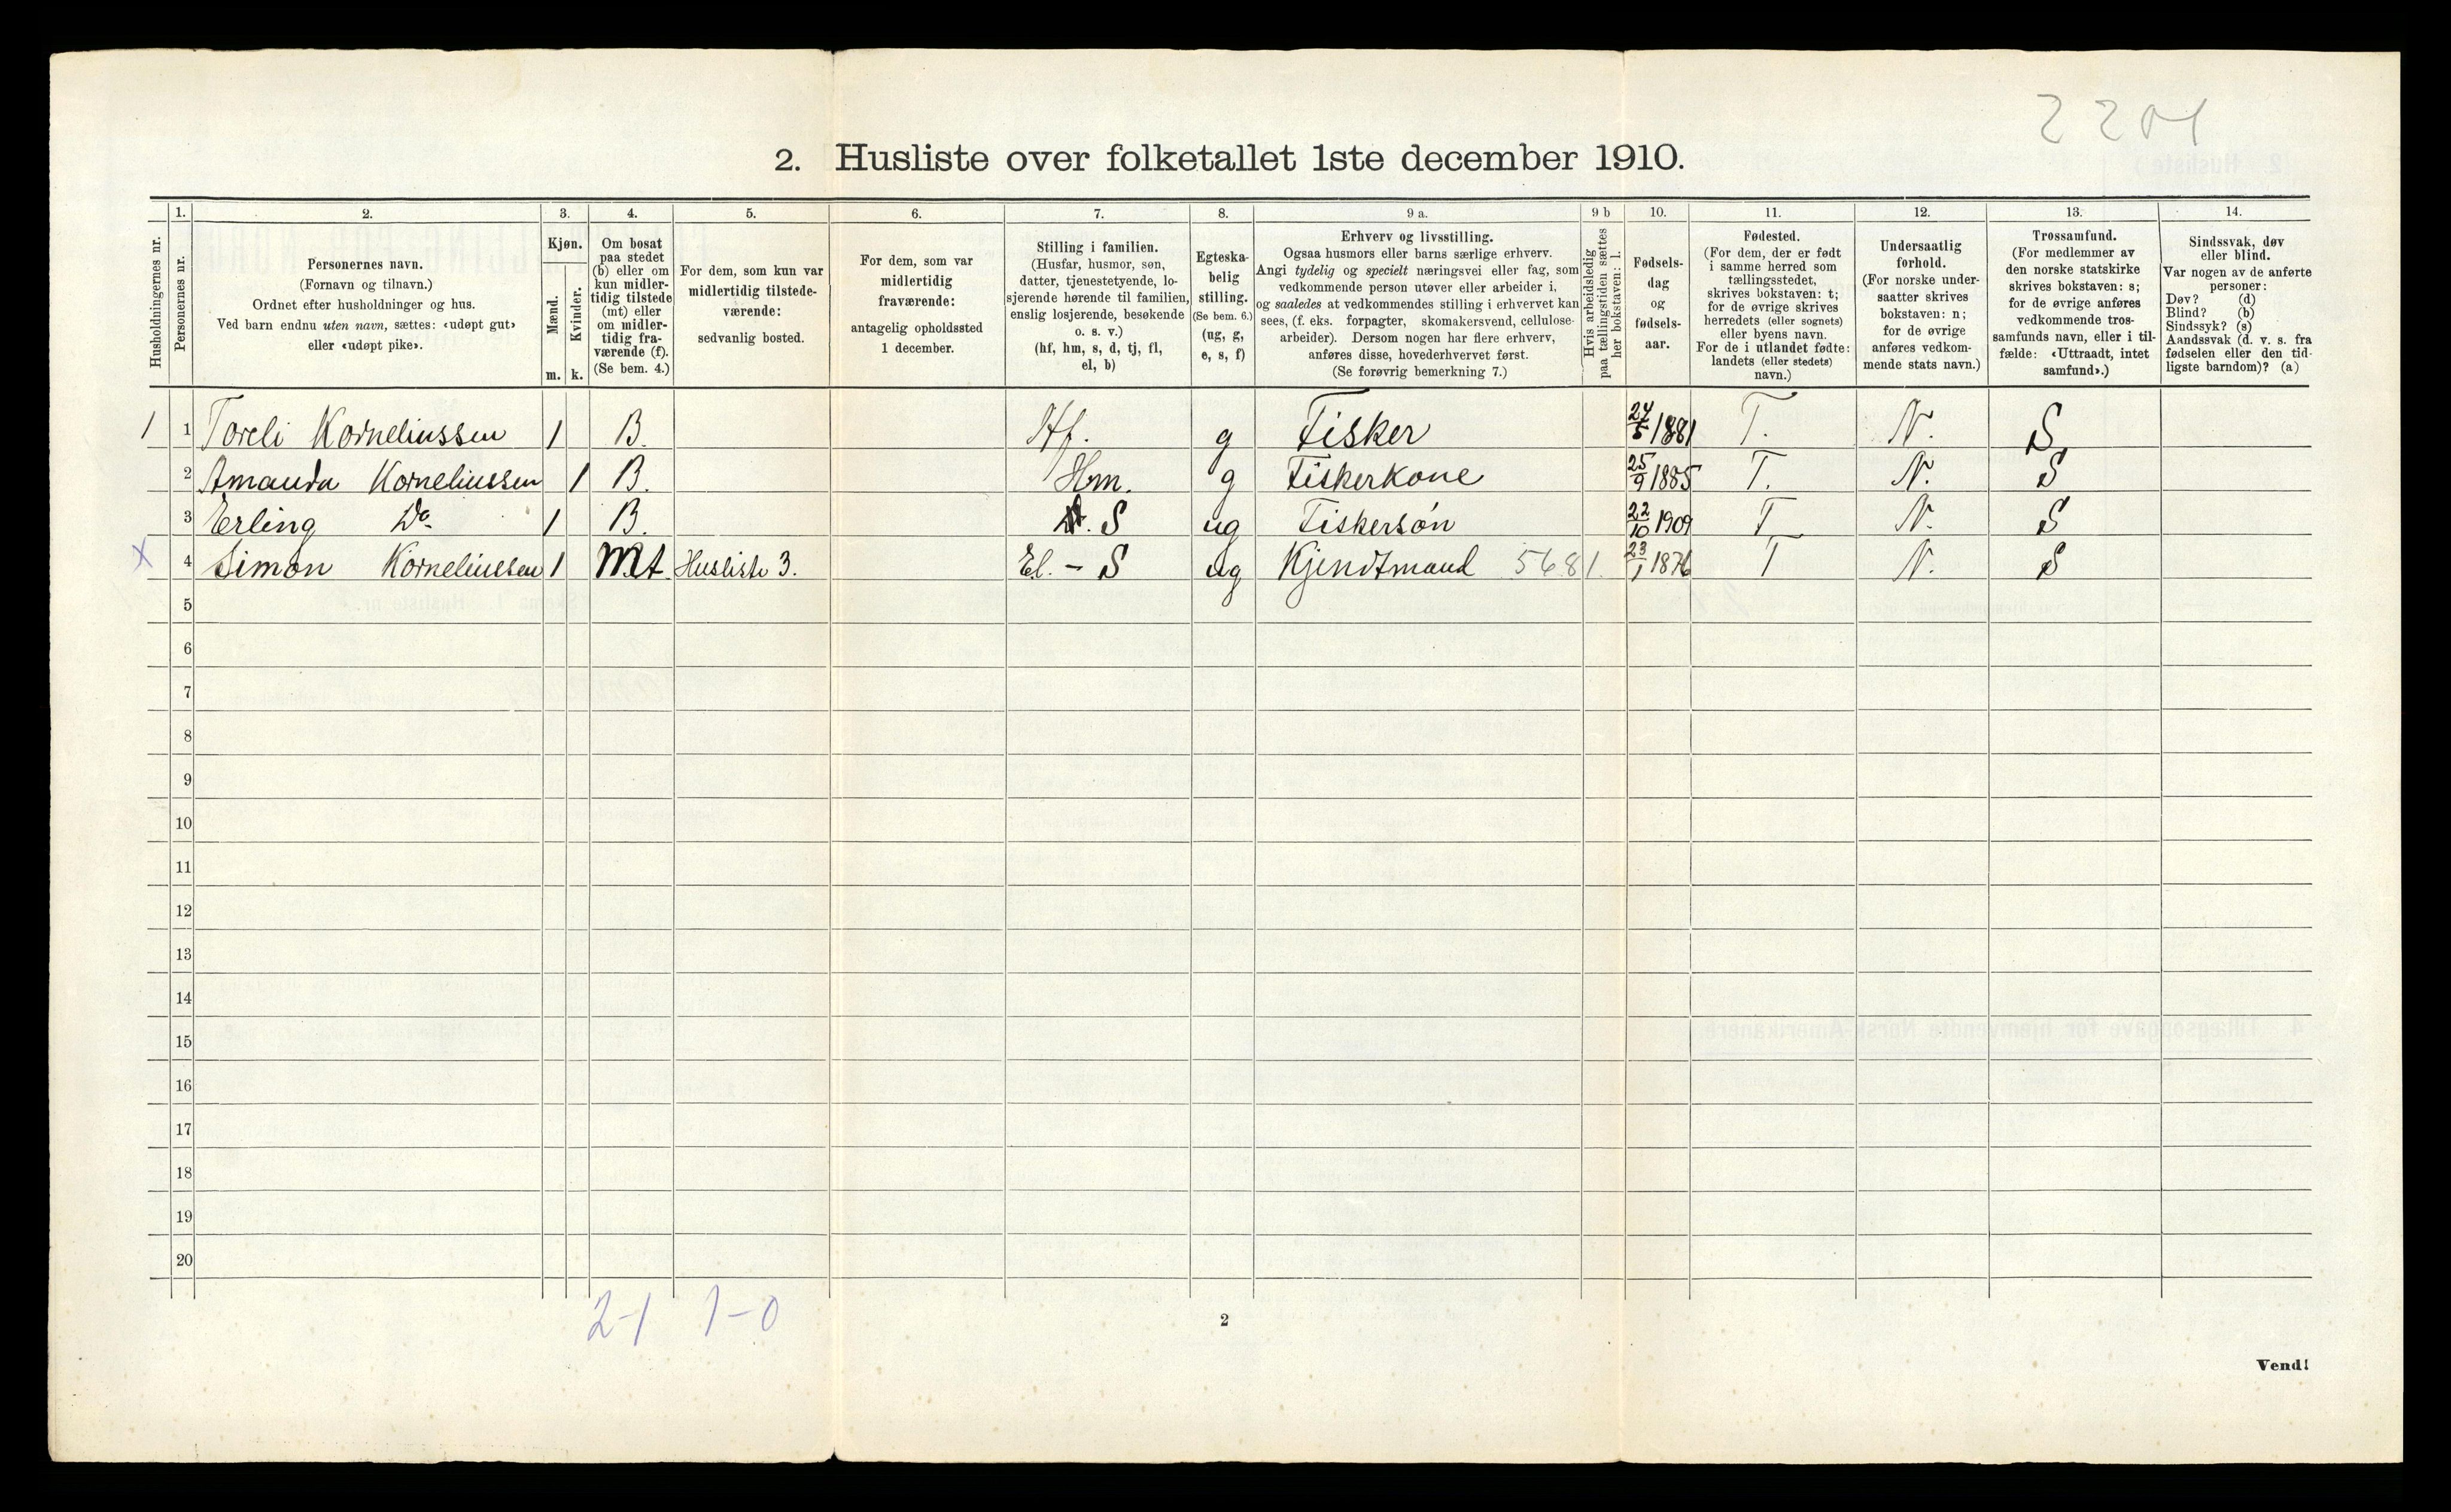 2201
2. Husliste over folketallet 1ste december 1910.
Husholdningernes nr.
1.
Personernes nr.
2.
Personernes navn.
(Fornavn og tilnavn.)
Ordnet efter husholdninger og hus.
Ved barn endnu uten navn, sættes: «udøpt gut»
eller «udøpt pike».
3.
Kjøn.
Mænd.
Kvinder.
m. k.
4.
Om bosat
paa stedet
(b) eller om
kun midler-
tidig tilstede
(mt) eller
om midler-
tidig fra-
værende (f).
(Se bem. 4.)
5.
For dem, som kun var
midlertidig tilstede-
værende:
sedvanlig bosted.
6.
For dem, som var
midlertidig
fraværende:
antagelig opholdssted
1 december.
7.
Stilling i familien.
(Husfar, husmor, søn,
datter, tjenestetyende, lo-
sjerende hørende til familien,
enslig losjerende, besøkende
o. s. v.)
(hf, hm, s, d, tj, fl,
el, b)
8.
Egteska-
belig
stilling.
(Se bem. 6.)
(ug, g,
e, s, f)
9 a.
Erhverv og livsstilling.
Ogsaa husmors eller barns særlige erhverv.
Angi tydelig og specielt næringsvei eller fag, som
vedkommende person utøver eller arbeider i,
og saaledes at vedkommendes stilling i erhvervet kan
sees, (f. eks. forpagter, skomakersvend, cellulose-
arbeider). Dersom nogen har flere erhverv,
anføres disse, hovederhvervet først.
(Se forøvrig bemerkning 7.)
9 b
Hvis arbeidsledig
paa tællingstiden sættes
her bokstaven: l.
10.
Fødsels-
dag
og
fødsels-
aar.
11.
Fødested.
(For dem, der er født
i samme herred som
tællingsstedet,
skrives bokstaven: t;
for de øvrige skrives
herredets (eller sognets)
eller byens navn.
For de i utlandet fødte:
landets (eller stedets)
navn.)
12.
Undersaatlig
forhold.
(For norske under-
saatter skrives
bokstaven: n;
for de øvrige
anføres vedkom-
mende stats navn.)
13.
Trossamfund.
(For medlemmer av
den norske statskirke
skrives bokstaven: s;
for de øvrige anføres
vedkommende tros-
samfunds navn, eller i til-
fælde: «Uttraadt, intet
samfund».)
14.
Sindssvak, døv
eller blind.
Var nogen av de anførte
personer:
Døv? (d)
Blind? (b)
Sindssyk? (s)
Aandssvak (d. v. s. fra
fødselen eller den tid-
ligste barndom)? (a)
1 1 Toreli Korneliussen 1 B. Hf. g Fisker 24/5 1881 T. N. S
2 Amanda Korneliussen 1 B. Hm. g Fiskerkone 25/9 1885 T. N. S
3 Erling Do 1 B. S ug Fiskersøn 22/10 1909 T N. S
X 4 Simon Korneliussen 1 Mt Husliste 3. El. - S ug Kjendtmand 5681. 23/1 1876 T N. S
5
6
7
8
9
10
11
12
13
14
15
16
17
18
19
20
2-1 1-0
2
Vend!